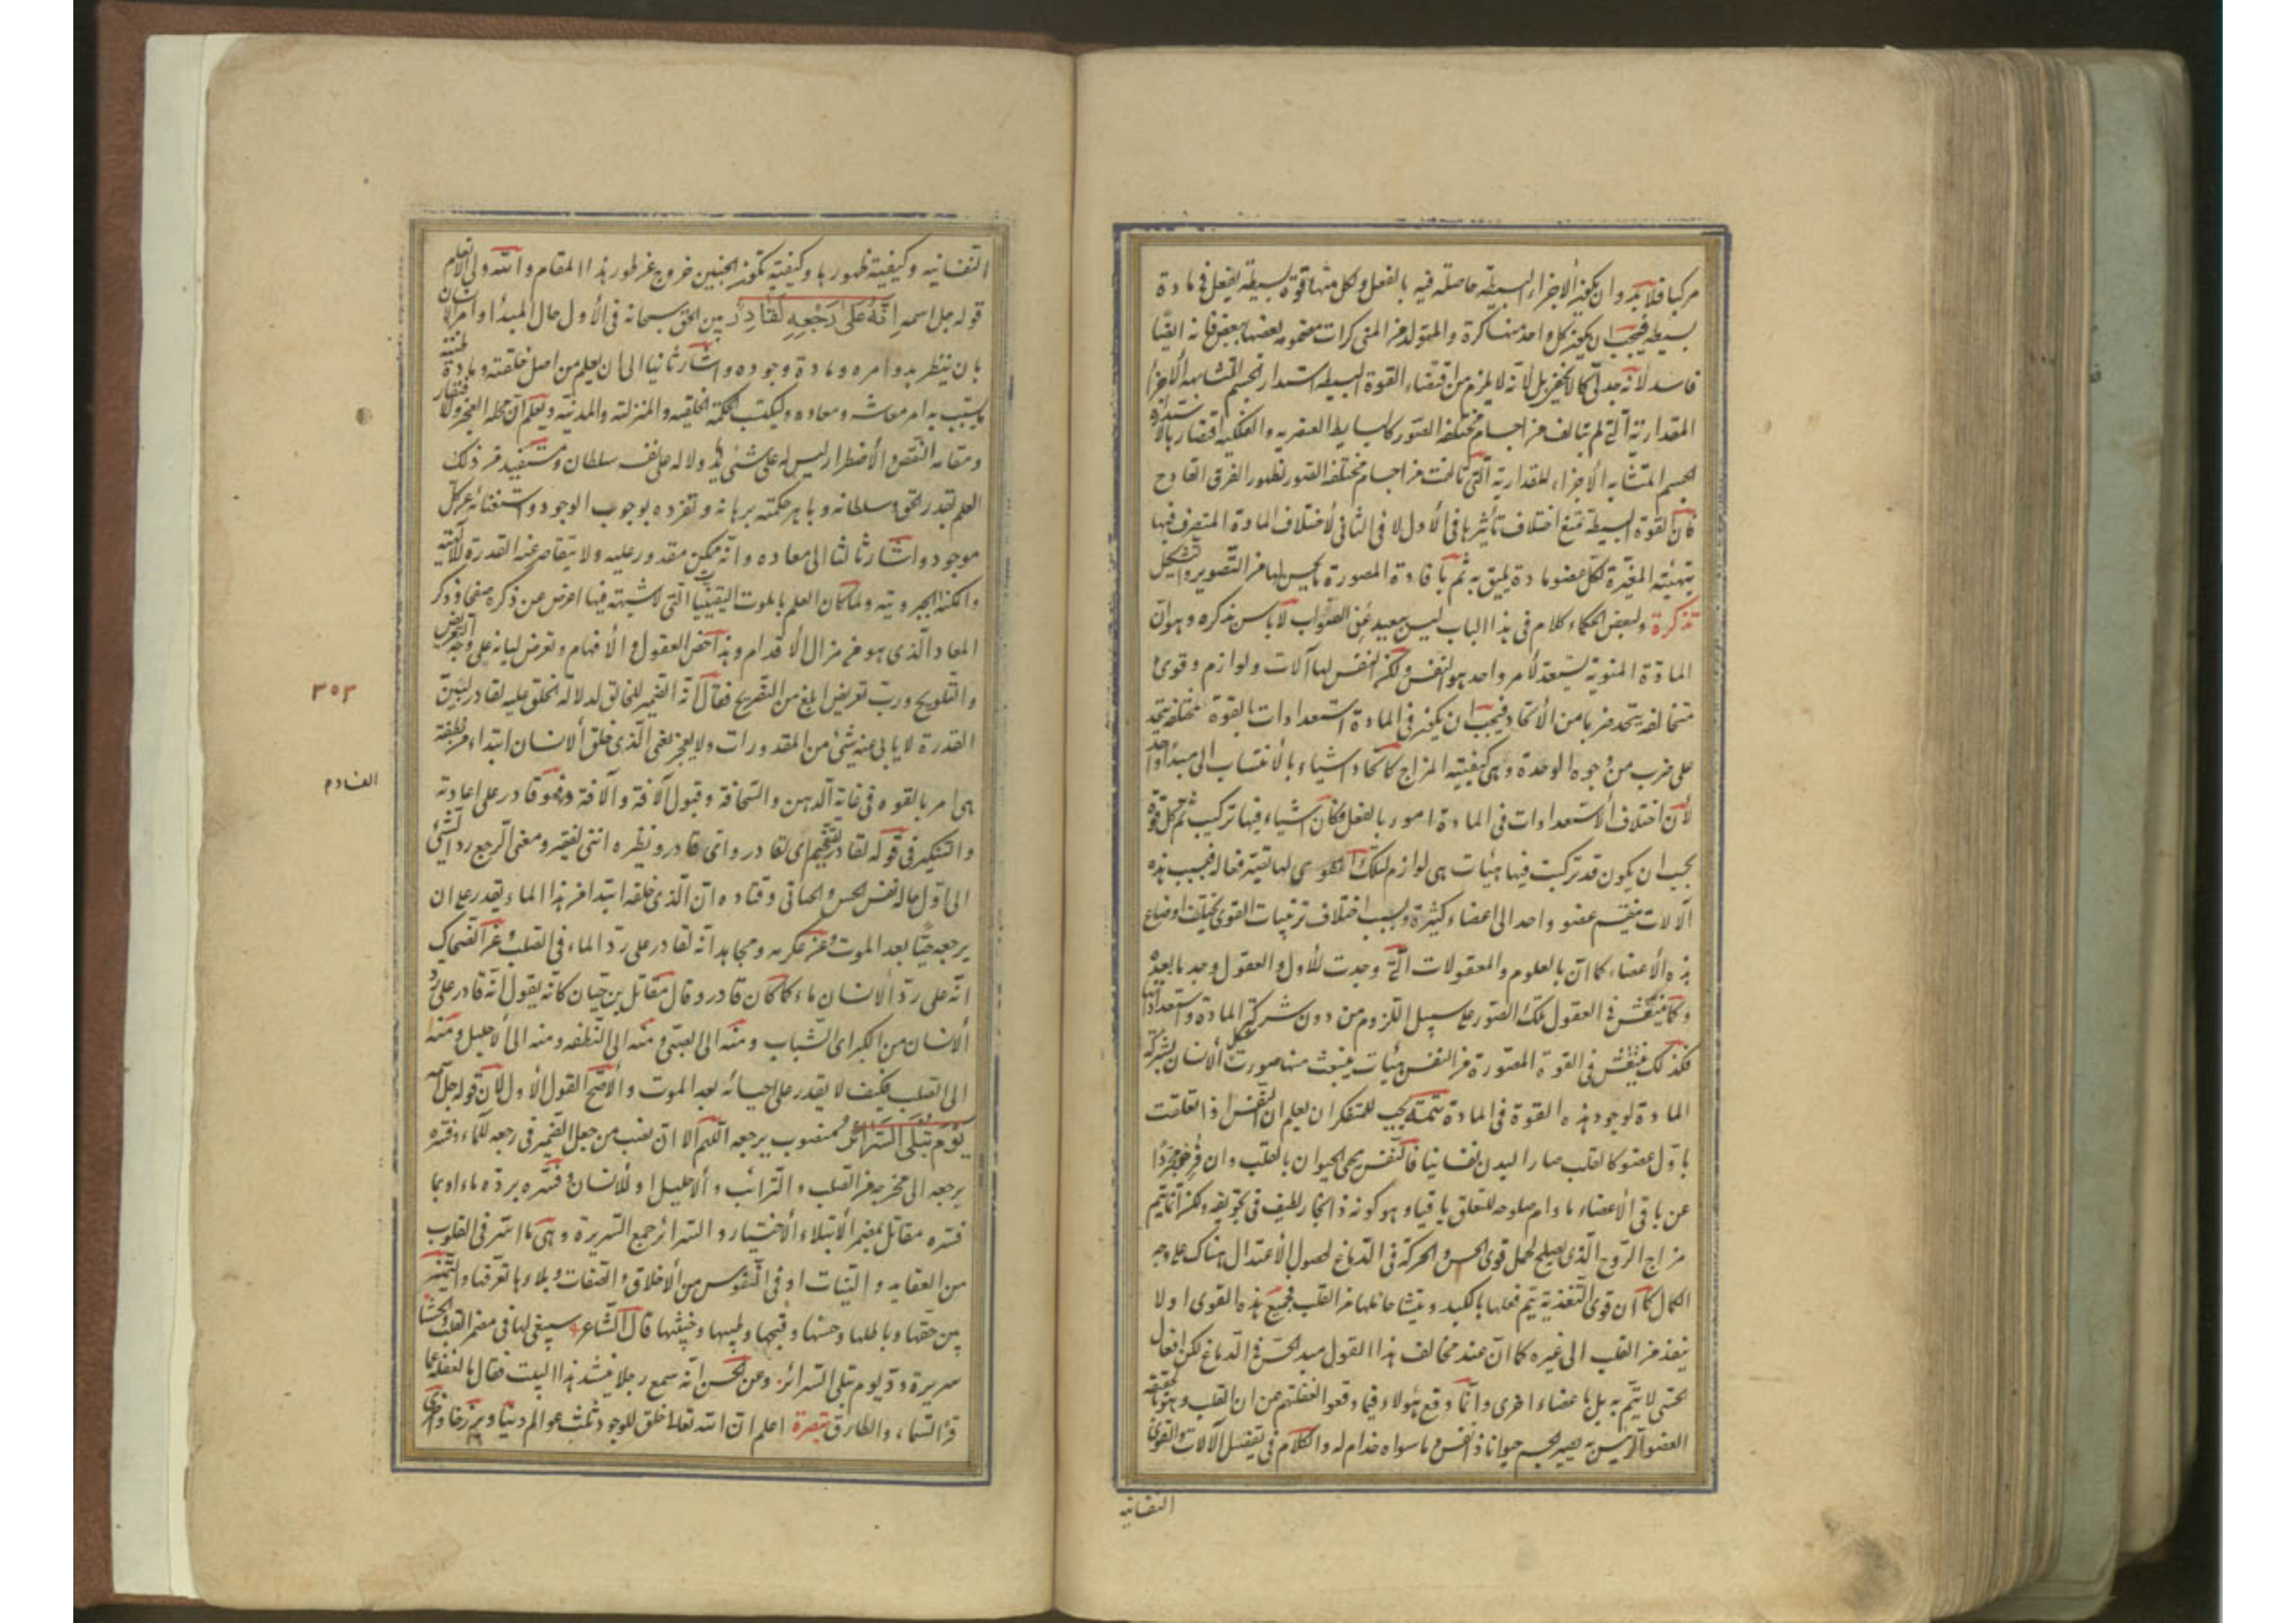 مركبا فلا بد وان يكون الاجزاء البسيطة حاصلة فيه بالفعل ولكل منها قوة بسيطة يفعل فى مادة
بسيطة فيجب ان يكون كل واحد منها كرة والمتولد من المنى كرات مضمومة بعضها ببعض فانه ايضا
فاسد لأنه جدلى كما لا يخفى بل لأنه لا يلزم من اقتضاء القوة البسيطة استدارة الجسم المتشابه الأجزاء
المقدارية التى لم تتألف من اجسام مختلفة الصور كالبسايط العنصرية والفلكية اقتضاؤها لاستدارة
الجسم المتشابه الأجزاء المقدارية التى تألفت من اجسام مختلفة الصور لظهور الفرق القادح
فان القوة البسيطة تمنع اختلاف تأثيرها فى الأول لا فى الثانى لأختلاف المادة المتصرف فيها
بتهيئة المغيرة لكل عضو مادة يليق به ثم بافادة المصورة ما يحس لها من التصوير والتشكيل
تذكرة ولبعض الحكماء كلام فى هذا الباب ليس ببعيد عن الصواب لا باس بذكره وهو ان
المادة المنوية يستعد لأمر واحد هو النفس ولكن النفس لها آلات ولوازم وقوى
متخالفة يتحد ضربا من الأتحاد فيجب ان يكون فى المادة استعدادات بالقوة مختلفة يتحد
على ضرب من وجوه الوحدة وهى كيفية المزاج كاتحاد اشياء بالأنتساب الى مبدأ واحد
لأن اختلاف الاستعدادات فى المادة امور بالفعل فكان اشياء فيها تركيب ثم كل قوة
يجب ان يكون قد تركبت فيها هيئات هى لوازم لتلك القوى لها تقية فعالة فبسبب هذه
الآلات ينقسم عضو واحد الى اعضاء كثيرة وبسبب اختلاف ترتيبات القوى يختلف اوضاع
هذه الأعضاء كما ان بالعلوم والمعقولات التى وجدت للأول والعقول وجد ما بعده
وكما ينتقش فى العقول تلك الصور على سبيل اللزوم من دون شركة المادة واستعداداتها
فكذلك ينتقش فى القوة المصورة من النفس هيئات ينبعث منها صورة شكل الانسان بشركة
المادة لوجود هذه القوة فى المادة تتمة يجب للمتفكر ان يعلم ان النفس اذا تعلقت
باول عضو كالقلب صار البدن نفسانيا فالنفس يحيى الحيوان بالقلب وان فرض مجردا
عن باقى الأعضاء ما دام صلوحه للتعلق باقيا وهو كونه ذا بخار لطيف فى تجويفه ولكن انما يتم
مزاج الروح الذى يصلح لحمل قوى الحس والحركة فى الدماغ لحصول الأعتدال هناك على وجه
الكمال كما ان قوى التغذية يتم فعلها بالكبد وينشأ حاملها من القلب فجميع هذه القوى اولا
ينفذ من القلب الى غيره كما ان عند مخالف هذا القول مبدأ الحس فى الدماغ لكن افعال
الحس لا يتم به بل باعضاء اخرى وانما وقع هؤلاء فيما وقعوا لغفلتهم عن ان القلب وهو بالحقيقة
العضو الرئيس به يصير الجسم حيوانا ذا نفس وما سواه خدام له والكلام فى تفضيل الآلات والقوى
النفسانية
النفسانية وكيفية ظهورها وكيفية تكون الجنين خروج عن طور هذا المقام والله ولى الانعام
قوله جل اسمه اِنَّهُ عَلىٰ رَجْعِهِ لَقَادِرٌ بين الحق سبحانه فى الأول حال المبدأ وامر الانسان
بان ينظر بدو امره ومادة وجوده واشار ثانيا الى ان يعلم من اصل خلقته ومادة طينته
ما يتسبب به امر معاشه ومعاده وليكتسب الحكمة الخلقية والمنزلية والمدنية ويعلم ان محله العجز والافتقار
ومقامه النقص والأضطرار ليس له على شئ يد ولا له على نفسه سلطان ويستفيد من ذلك
العلم بقدر الحق وسلطانه وباهر حكمته برهانه وتفرده بوجوب الوجود واستغنائه عن كل
موجود واشار ثالثا الى معاده وانه ممكن مقدور عليه ولا يتقاصر عنه القدرة الالهية
والمكنة الجبروتية ولما كان العلم بالموت من اليقينيات التى لا شبهة فيها اعرض عن ذكره صفحا وذكر
المعاد الذى هو من مزال الأقدام ومداحض العقول والأفهام وتعرض لبيانه على وجه التعريض
والتلويح ورب تعريض ابلغ من التصريح فقال انه الضمير للخالق لدلالة الخلق عليه لقادر لبين
القدرة لا يأبى عنه شئ من المقدورات ولا يعجز يعنى الذى خلق الانسان ابتداء من نطفة
هى امر بالقوة فى غاية الدهن والسخافة وقبول الآفة والآفة فهو قادر على اعادته
والتنكير فى قوله لقادر للتفخيم اى لقادر واى قادر ونظيره اننى لفقير ومعنى الرجع رد الشئ
الى اول حاله فعن الحسن والجبائى وقتادة ان الذى خلقه ابتداء من هذا الماء يقدر على ان
يرجعه حيا بعد الموت وعن عكرمة ومجاهد انه لقادر على رد الماء فى الصلب وعن الضحاك
انه على رد الانسان ماء كما كان قادر وقال مقاتل بن حيان كانه يقول انه قادر على رد
الانسان من الكبر الى الشباب ومنه الى الصبى ومنه الى النطفة ومنه الى الاحليل ومنه
الى الصلب فكيف لا يقدر على احيائه بعد الموت والأصح القول الأول لان قوله جل اسمه
يَوْمَ تُبْلَى السَّرَائِرُ منصوب برجعه اللهم الا ان نصب من جعل الضمير فى رجعه للماء وفسره
يرجعه الى مخرجه من الصلب والترائب والاحليل او للأنسان وفسره برده ماء او بما
فسره مقاتل بمضمر الأبتلاء الأختبار والسرائر جمع السريرة وهى ما اسر فى القلوب
من العقايد والنيات او فى النفوس من الأخلاق والصفات وبلاؤها تعرفها والتميز
بين حقها وباطلها وحسنها وقبيحها وطيبها وخبيثها قال الشاعر سيبقى لها فى مضمر القلب والحشا
سريرة ود يوم تبلى السرائر وعن الحسن انه سمع رجلا ينشد هذا البيت فقال ما اغفله عما
فى السماء والطارق تبصرة اعلم ان الله تعالى خلق للوجود ثلث عوالم دنيا وبرزخا واخرى
٣٥٣